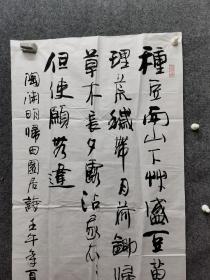 種豆南山下艸盛豆苗
理荒穢帶月荷鋤歸
草木長夕露沾我衣
但使願無違
陶渊明歸田園居詩壬午年夏